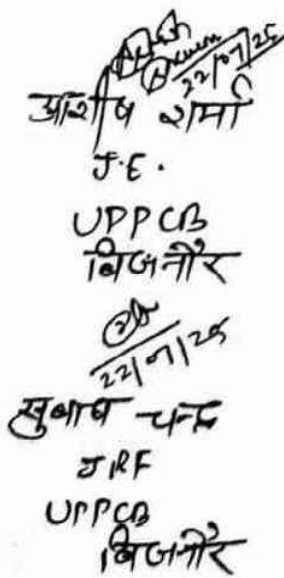 22/07/25
आशीष शर्मा
J.E.
UPPCB
बिजनौर
22/07/25
सुभाष चन्द्र
JRF
UPPCB
बिजनौर